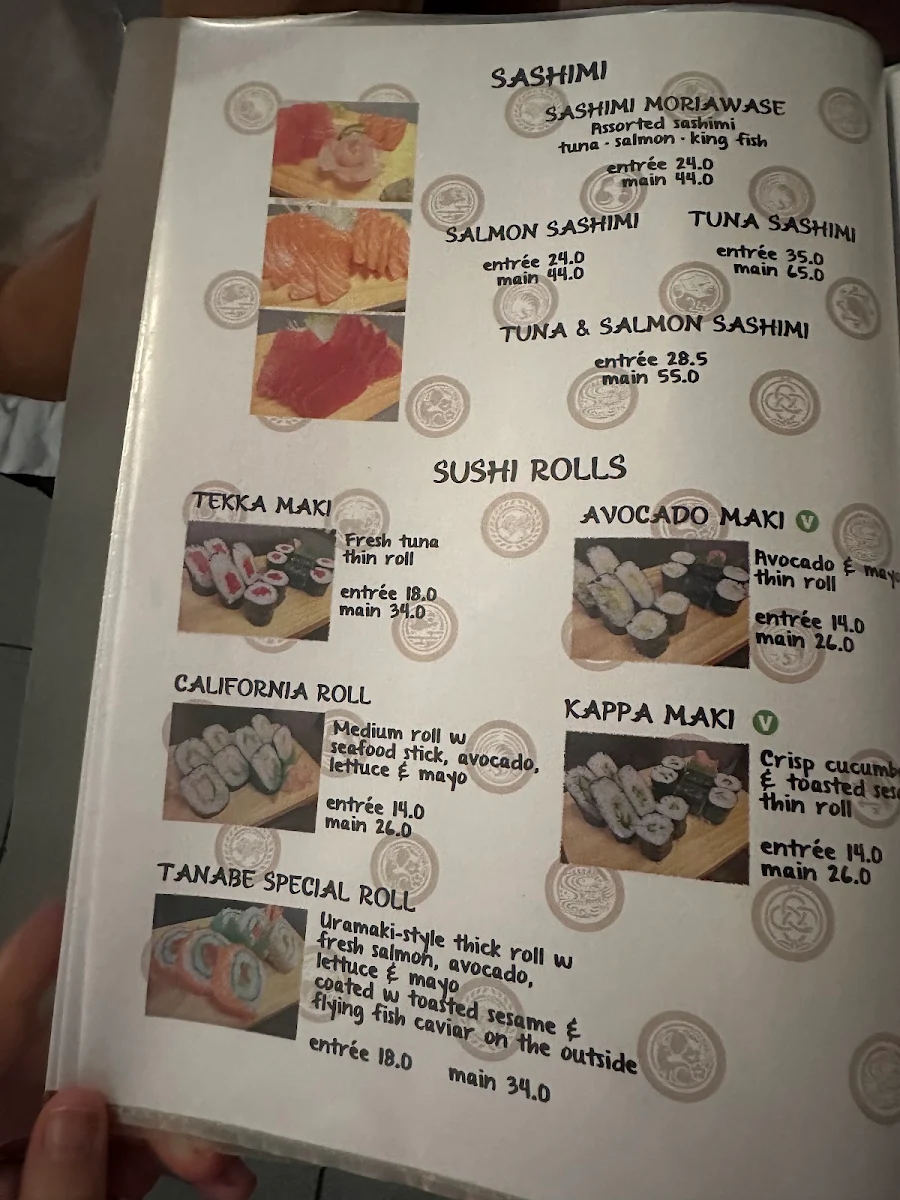 SASHIMI
SASHIMI MORIAWASE
Assorted sashimi
tuna · salmon · king fish
entrée 24.0
main 44.0
SALMON SASHIMI
entrée 24.0
main 44.0
TUNA SASHIMI
entrée 35.0
main 65.0
TUNA & SALMON SASHIMI
entrée 28.5
main 55.0
SUSHI ROLLS
TEKKA MAKI
Fresh tuna
thin roll
entrée 18.0
main 34.0
AVOCADO MAKI V
Avocado & mayo
thin roll
entrée 14.0
main 26.0
CALIFORNIA ROLL
Medium roll w
seafood stick, avocado,
lettuce & mayo
entrée 14.0
main 26.0
KAPPA MAKI V
Crisp
& toasted
thin roll
entrée 14.0
main 26.0
TANABE SPECIAL ROLL
Uramaki-style thick roll w
fresh salmon, avocado,
lettuce & mayo
coated w toasted sesame &
flying fish caviar on the outside
entrée 18.0 main 34.0